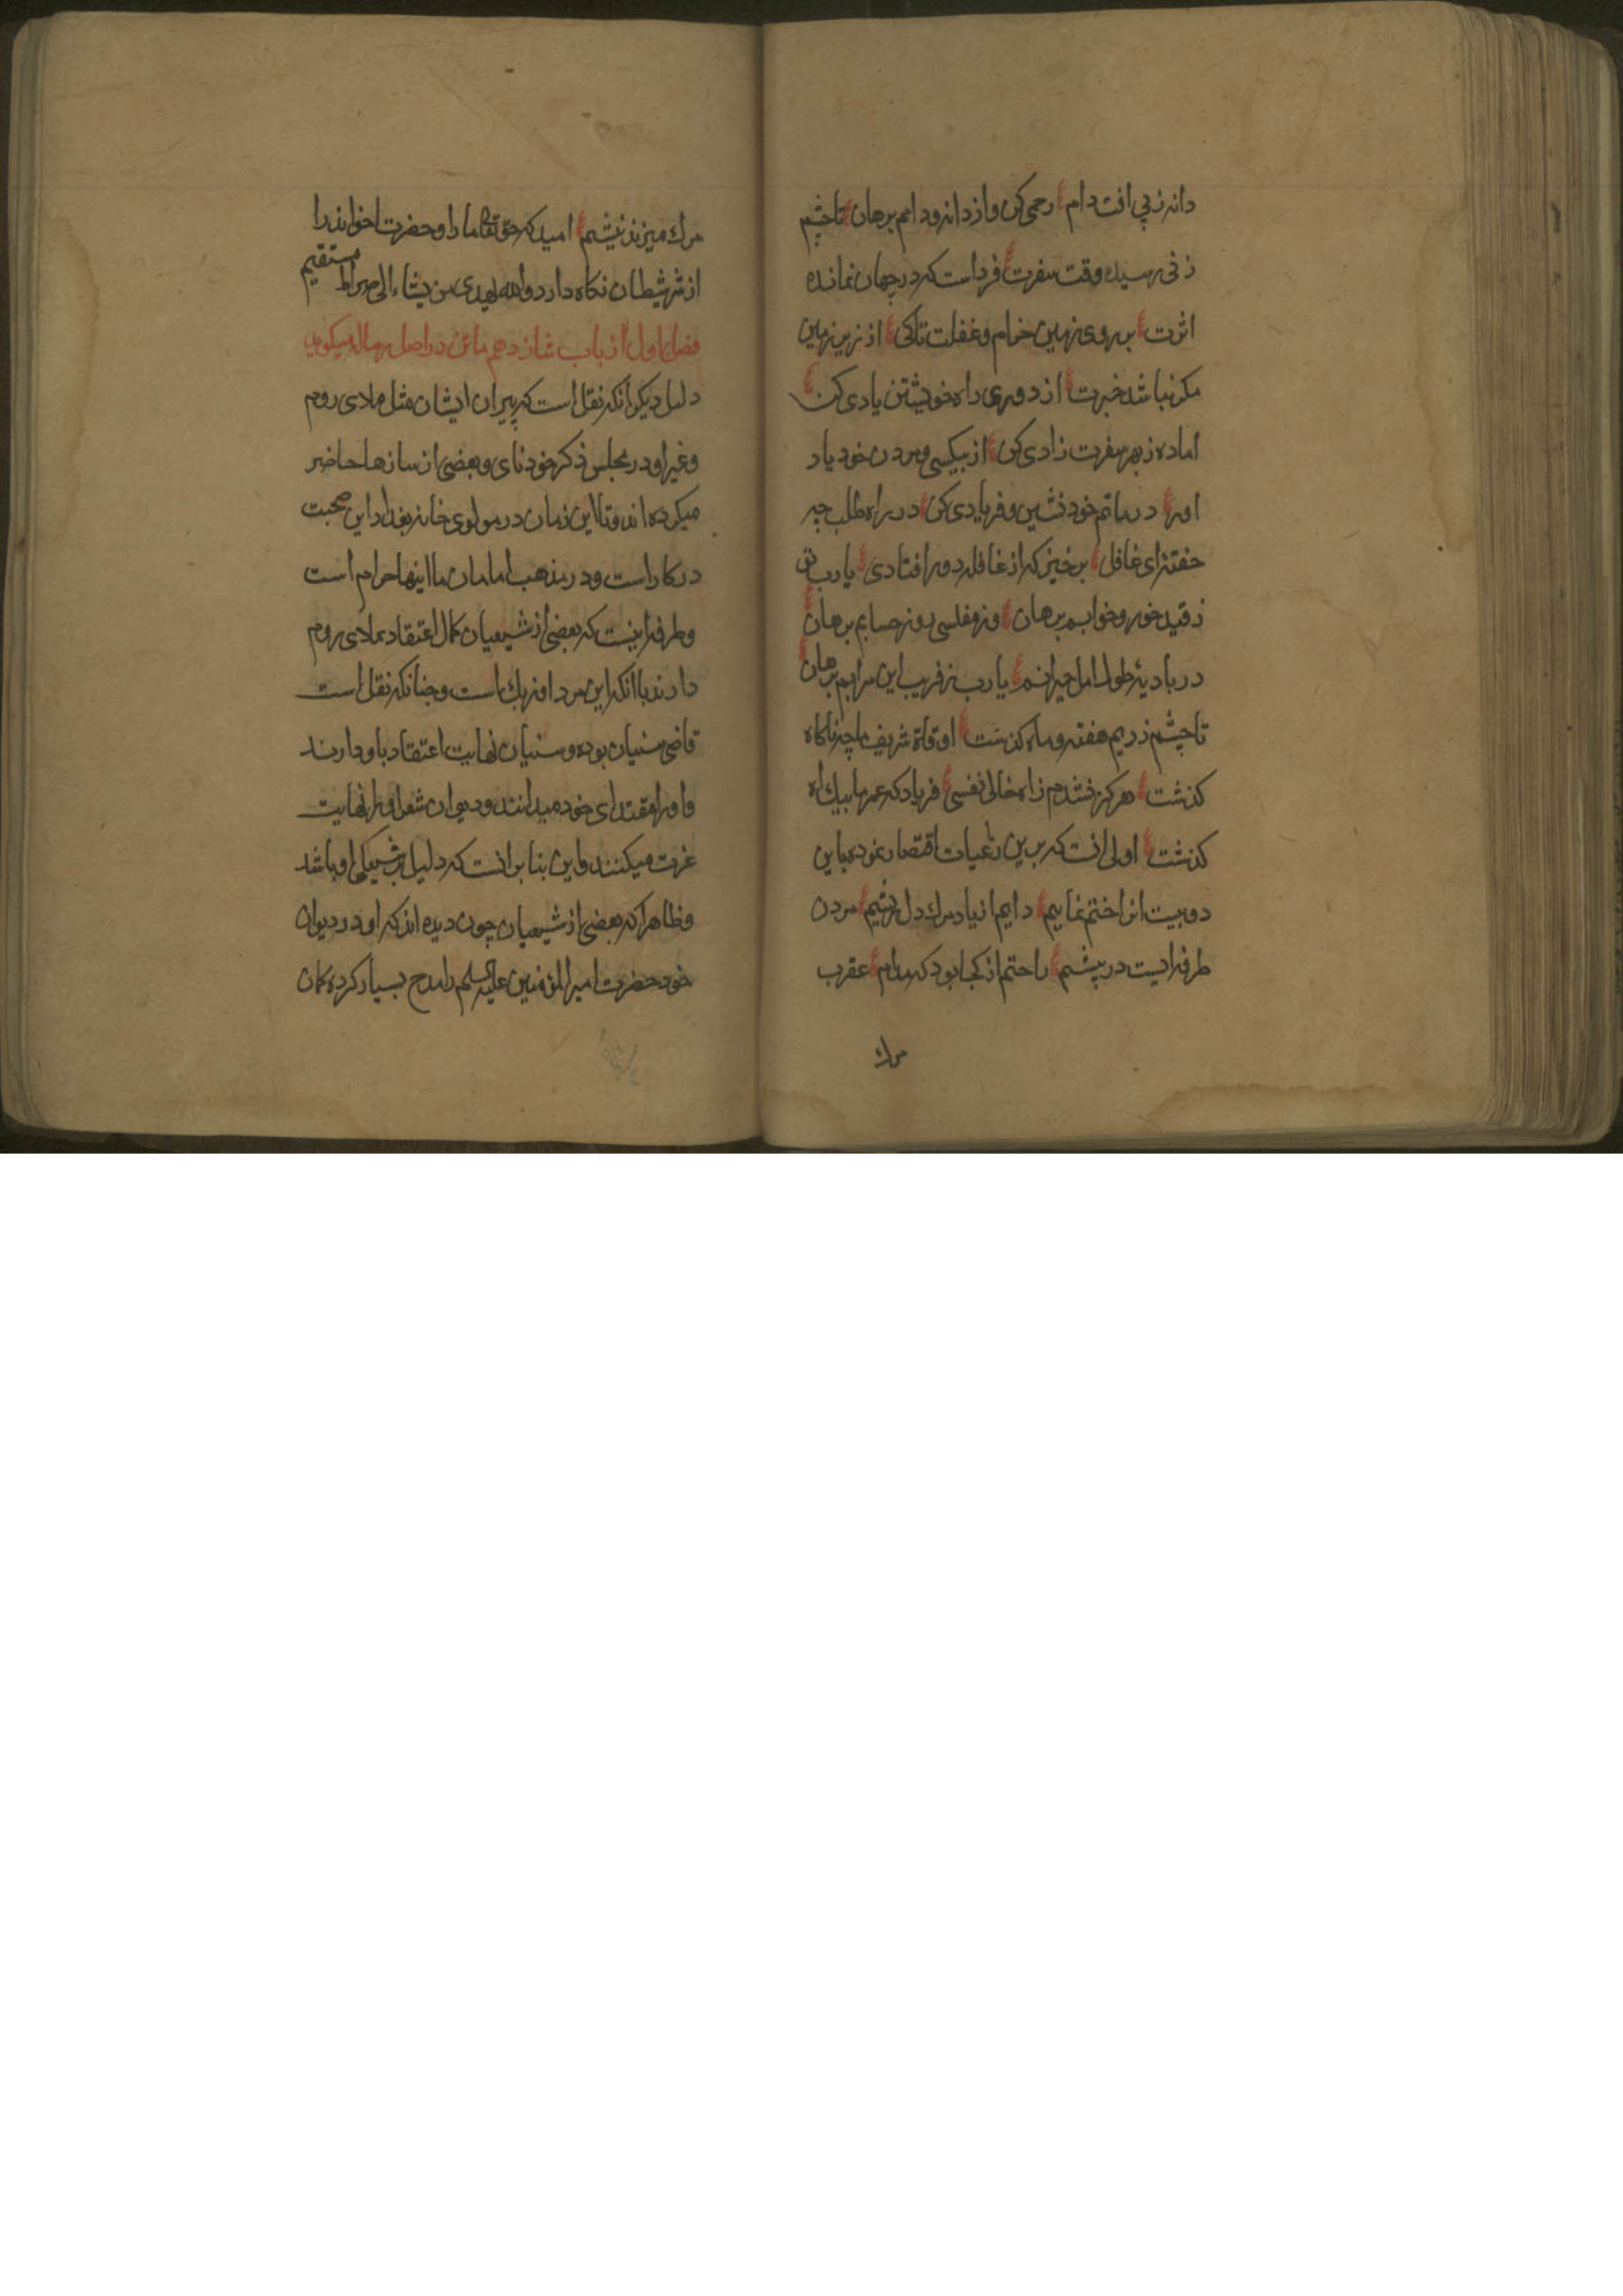 دانه ز پی افت دام ع رحمی کن و از دانه و دامم برهان ع تا چشم
زنی رسیده وقت سفرت ع فرداست که در جهان نمانده
اثرت ع بر روی زمین خرام و غفلت تا کی ع از زیر زمین
مکر نباشد خبرت ع از دوری راه خویشتن یادی کن ع
اماده ز بهر سفرت زادی کن ع از بیکسی و مردن خود یاد
اور ع در ماتم خود نشین و فریادی کن ع در راه طلب چه
خفتهٔ ای غافل ع برخیز که از غافله دور افتادی ع یا رب تو
ز قید خور و خوابم برهان ع وز مفلسی روز حسابم برهان ع
در بادیهٔ طول امل حیرانم ع یا رب ز فریب این سرابم برهان ع
تا چشم زدیم هفته و ماه کذشت ع اوقاة شریف ما چه ناکاه
کذشت ع هرکز نشدم ز اه خالی نفسی ع فریاد که عمر ما بیک اه
کذشت ع اولی انست که برین رباعیات اقتصار نموده باین
دو بیت انرا ختم نماییم ع دایم از یاد مرك دل ریشیم ع مردن
طرفه ایست در پیشم ع راحتم از کجا بود که مدام ع عقرب
مرك
مرك میزند نیشم ع امید که حق تعالی ما را و حضرت اخواند را
از شر شیطان نکاه دارد والله یهدی من یشاء الی صراط مستقیم
فصل اول از باب شانزدهم ماتن در اصل رساله میکوید
دلیل دیکر انکه نقل است که پیران ایشان مثل ملای روم
و غیر او در مجلس ذکر خود نای و بعضی از سازها حاضر
میکرده اند و تا این زمان در مولوی خانه بغداد این صحبت
در کار است و در مذهب امامان ما اینها حرام است
و طرفه اینست که بعضی از شیعیان کمال اعتقاد بملای روم
دارند با انکه این مرد اوزبك است و چنانکه نقل است
قاضی سنیان بوده و سنیان نهایت اعتقاد باو دارند
و او را مقتدای خود میدانند و دیوان شعر او را نهایت
عزت میکنند و این بنا بر انست که دلیل بر شیعکی او باشد
و ظاهرا که بعضی از شیعیان چون دیده اند که او در دیوان
خود حضرت امیر المؤمنین علیه السلم را مدح بسیار کرده کمان